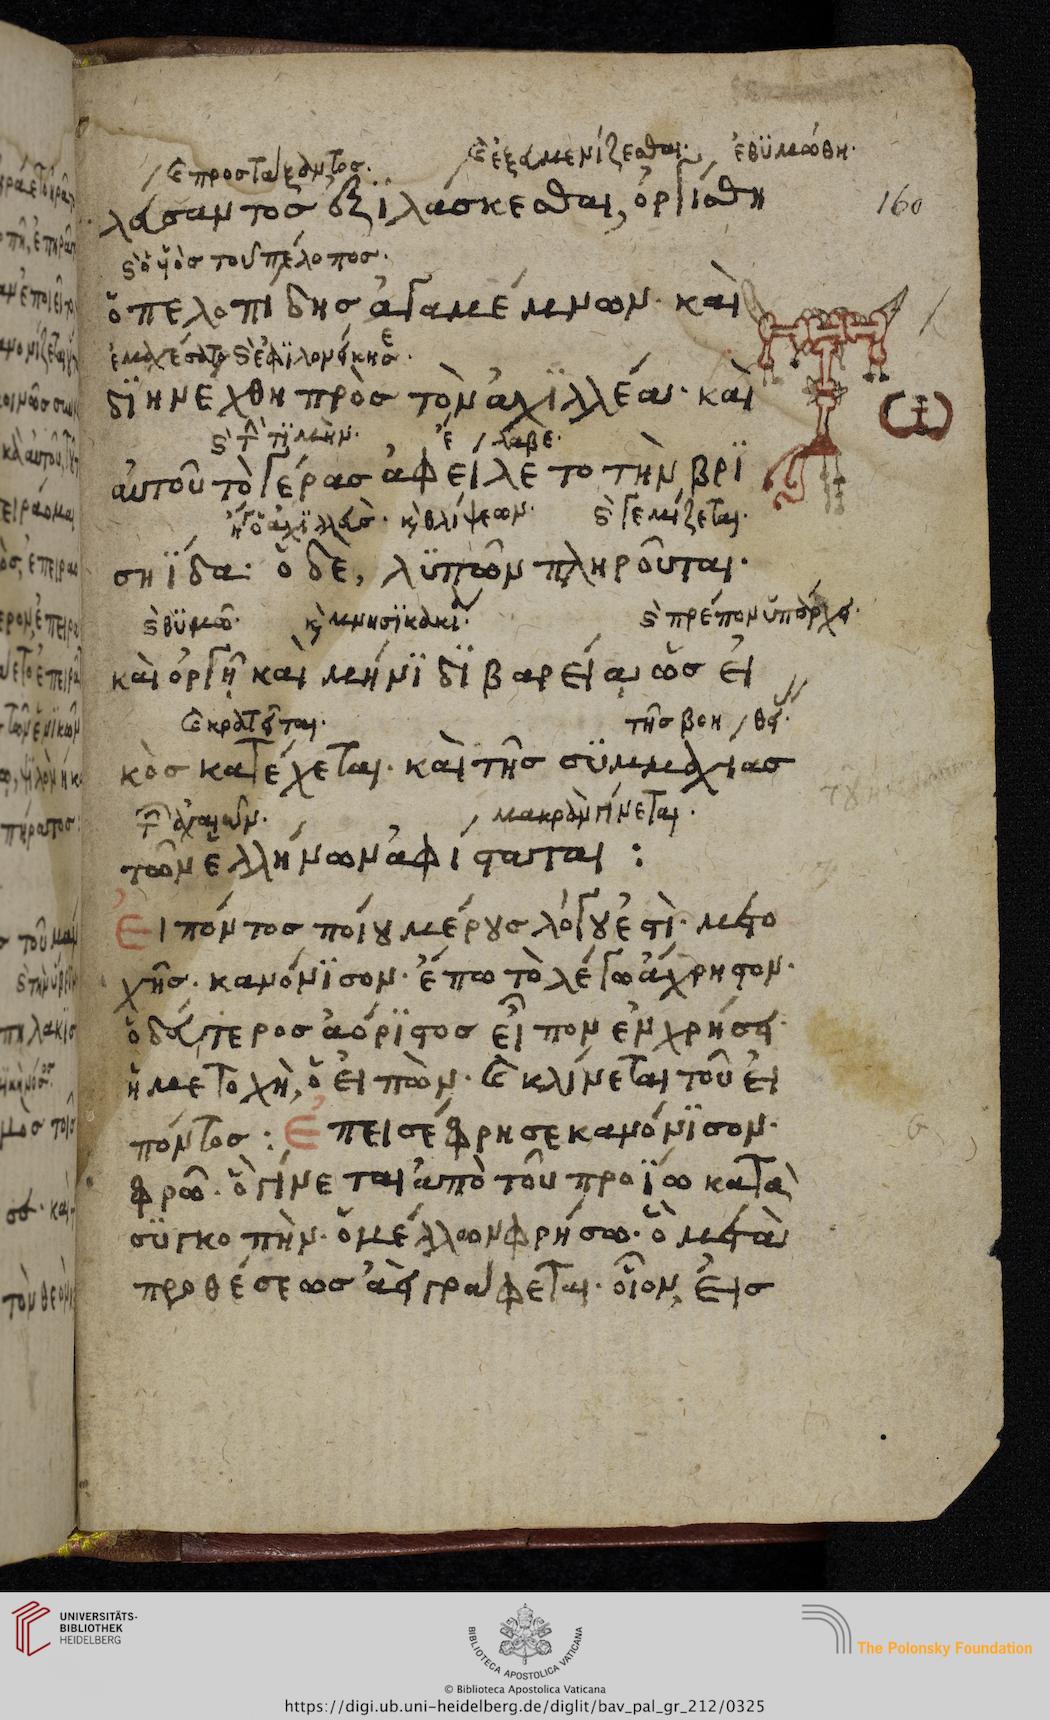 προστάξαντος. ἐξευμενίζεσθαι. ἐθυμώθη.
λάσαντος ἐξϊλάσκεσθαι, ὀργίσθη
160
ὁ υἱὸς τοῦ πέλοπος.
ὁ πελοπίδης ἀγαμέμνων. καὶ
ἐμαχέσατο ἐφϊλονείκησε.
δϊηνέχθη πρὸς τὸν ἀχϊλλέα. καὶ
τὴν τϊμὴν. ἔλαβε.
αὐτοῦ τὸ γέρας ἀφείλετο τὴν βρϊ
ἤγουν ὁ ἀχϊλλεὺς. καὶ θλίψεων. γεμίζεται.
σηΐδα. ὁ δὲ, λϋπῶν πληροῦται.
θϋμῶ. καὶ μνησϊκακία. πρέπον ὑπάρχει.
καὶ ὀργῆ καὶ μήνϊδϊ βαρεία, ὡς εἰ
κρατεῖται. τῆς βοηθείας.
κὸς κατέχεται. καὶ τῆς σϋμμαχίας
τῶν ἀχαιῶν. μακρὰν γίνεται.
τῶν ἑλλήνων ἀφίσταται :
Εἰπόντος ποίου μέρους λόγου ἐστὶ. μετο
χῆς. κανόνϊσον. ἔπω τὸ λέγω ἄχρηστον.
ὁ δεύτερος ἀόρϊστος εἶπον ἐν χρήσει.
ἡ μετοχὴ, ὁ εἰπὼν. κλίνεται τοῦ εἰ
πόντος : Ἐπεισέφρησε κανόνϊσον.
φρῶ. ὃ γίνεται ἀπὸ τοῦ προΐω κατὰ
σϋγκοπὴν. ὁ μέλλων φρήσω. ὃ μετὰ
προθέσεως ἀεὶ γράφεται. οἷον, εἰσ
UNIVERSITÄTS-
BIBLIOTHEK
HEIDELBERG
BIBLIOTECA APOSTOLICA VATICANA
The Polonsky Foundation
© Biblioteca Apostolica Vaticana
https://digi.ub.uni-heidelberg.de/diglit/bav_pal_gr_212/0325